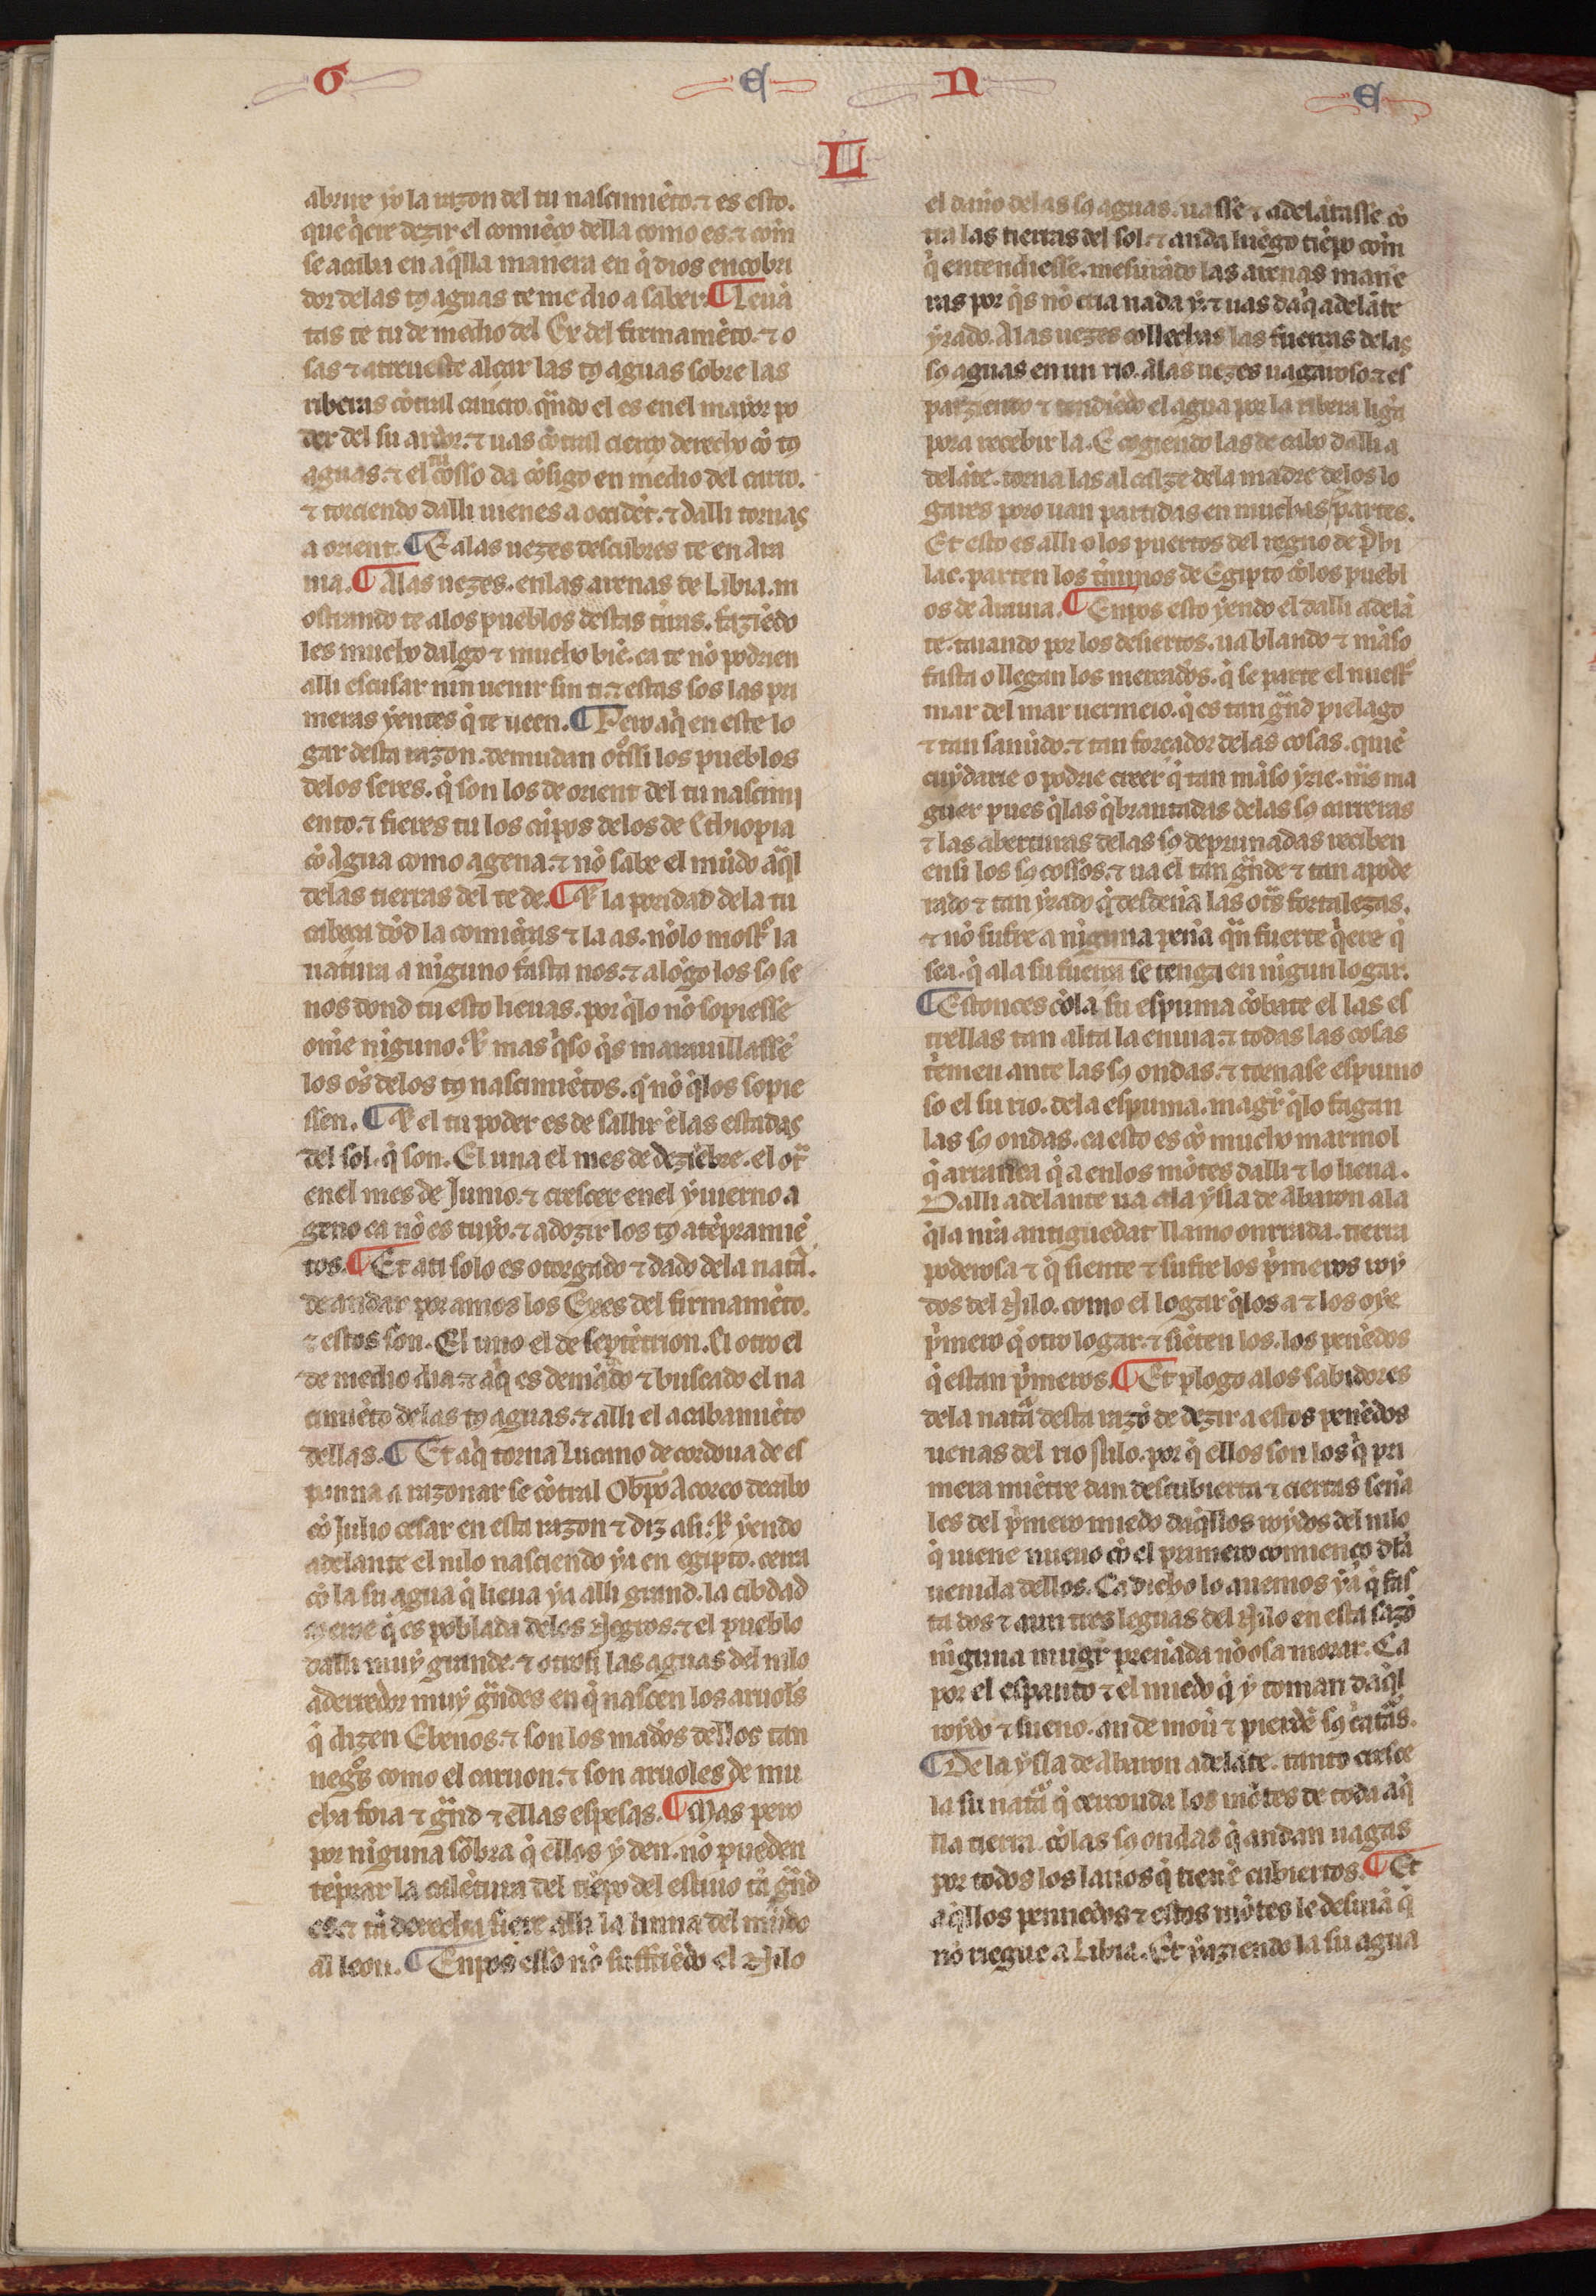 G E N E
L
abrire yo la razon del tu nascimiẽto. ⁊ es esto.
que q̃ere dezir el comiẽço della como es. ⁊ com
se acaba en aq̃lla manera en q̃ dios encobri
dor delas tꝯ aguas te me dio a saber. ¶ Leuã
tas te tu de medio del Exe del firmamẽto. ⁊ o
sas ⁊ atreueste alçar las tꝯ aguas sobre las
riberas cõtral cancro. q̃ndo el es enel mayor po
der del su ardor. ⁊ uas cõtral cierço derecho cõ tꝯ
aguas. ⁊ el tu cosso da cõsigo en medio del carro.
⁊ torciendo dalli uienes a occidẽt. ⁊ dalli tornas
a orient. ¶ E alas uezes descubres te en Ara
uia. ¶ Alas uezes. enlas arenas de Libia. m
ostrando te alos pueblos destas tr̃ras. faziẽdo
les mucho dalgo ⁊ mucho biẽ. ca te nõ podrien
alli escusar nin ueuir sin ti. ⁊ estas sos las pri
meras yentes q̃ te ueen. ¶ Pero aq̃ en este lo
gar desta razon. demudan otrossi los pueblos
delos seres. q̃ son los de orient del tu nascimi
ento. ⁊ fieres tu los cãpos delos de Ethiopia
cõ Agua como agena. ⁊ nõ sabe el mũdo aq̃l
delas tierras del te de. ¶ ⁊ la poridad dela tu
cabeça dõd la comiẽças ⁊ la as. nõ lo mostro la
natura a niguno fasta nos. ⁊ alõgo los sꝯ se
nos dond tu esto lieuas. por q̃lo nõ sopiesse
om̃e niguno. ⁊ mas q̃so q̃s marauillassẽ
los oẽs delos tꝯ nascimiẽtos. q̃ nõ q̃los sopie
ssen. ¶ ⁊ el tu poder es de sallir ẽlas estadas
del sol. q̃ son. El una el mes de deziẽbre. el otra
enel mes de Junio. ⁊ crescer enel yuierno a
geno ca nõ es tuyo. ⁊ adozir los tꝯ atẽpramiẽ
tos. ¶ Et ati solo es otorgado ⁊ dado dela natã.
de andar por amos los Exes del firmamẽto.
⁊ estos son. El uno el de septẽtrion. El otro el
de medio dia. ⁊ aq̃ es demãdado ⁊ buscado el na
cimiẽto delas tꝯ aguas. ⁊ alli el acabamiẽto
dellas. ¶ Et aq̃ torna Lucano de cordoua de es
panna a razonar se cõtral Obpõ Acoreo decabo
cõ Julio cesar en esta razon ⁊ diz assi. ⁊ yendo
adelante el nilo nasciendo ya en egipto. cerca
cõ la su agua q̃ lieua ya alli grand. la cibdad
meroe q̃ es poblada delos Negros. ⁊ el pueblo
dalli muy grande. ⁊ otrosi las aguas del nilo
aderredor muy gr̃ndes en q̃ nascen los aruols
q̃ dizen Ebenos. ⁊ son los mados dellos tan
negros como el caruon. ⁊ son aruoles de mu
cha foia ⁊ gr̃nd ⁊ ellas espesas. ¶ Mas pero
por niguna sõbra q̃ ellos y den. nõ pueden
tẽprar la calẽtura del tiẽpo del estiuo tã gr̃nd
es. ⁊ tã derecha fiere alli la linna del mũdo
al leon. ¶ Enpos esso nõ suffriẽdo el Nilo
el dano delas sꝯ aguas. uasse ⁊ adelãtasse cõ
tra las tierras del sol. ⁊ anda luẽgo tiẽpo com
q̃ entendiesse. mesurãdo las arenas mane
ras por q̃s nõ cria nada y. ⁊ uas daq̃ adelãte
yrado. Alas uezes collechas las fuerças delas
sꝯ aguas en un rio. alas uezes uagaroso. ⁊ es
parziendo ⁊ tendiẽdo el agua por la ribera ligera
pora recebir la. E cogiendo las de cabo dalli a
delãte. torna las al calze dela madre delos lo
gares poro uan partidas en muchas partes.
Et esto es alli o los puertos del regno de Phi
lac. parten los tr̃minos de Egipto cõlos puebl
os de Arauia. ¶ Enpos esto yendo el dalli adelã
te. taiando por los desiertos. ua blando ⁊ mãso
fasta o llegan los mercados. q̃ se parte el nuestro
mar del mar uermeio. q̃ es tan gr̃nd pielago
⁊ tan sanudo. ⁊ tan forçador delas cosas. quiẽ
cuydarie o podrie creer q̃ tan mãso yrie. mas ma
guer pues q̃las q̃brantadas delas sꝯ carreras
⁊ las aberturas delas sꝯ deprimadas reciben
ensi los sꝯ cossos. ⁊ ua el tan gr̃nde ⁊ tan apode
rado ⁊ tan yrado q̃ desdeña las otras fortalezas.
⁊ nõ sufre a niguna peña q̃n fuerte q̃ere q̃
sea. q̃ ala su fuerça se tenga en nigun logar.
¶ Estonces cõla su espuma cõbate el las es
trellas tan alta la enuia. ⁊ todas las cosas
tremen ante las sꝯ ondas. ⁊ tornase espumo
so el su rio. dela espuma. magr q̃lo fagan
las sꝯ ondas. ca esto es cõ mucho marmol
q̃ arranca q̃ a enlos mõtes dalli ⁊ lo lieua.
Dalli adelante ua ala ysla de Abaton ala
q̃la nr̃a antiguedat llamo onrrada. tierra
poderosa ⁊ q̃ siente ⁊ sufre los pr̃meros roy
dos del Nilo. como el logar q̃los a ⁊ los oye
pr̃mero q̃ otro logar. ⁊ siẽten los. los penẽdos
q̃ estan pr̃meros. ¶ Et plogo alos sabidores
dela natã desta razõ de dezir a estos penẽdos
uenas del rio Nilo. por q̃ ellos son los q̃ pri
mera miẽtre dan descubierta ⁊ ciertas seña
les del pr̃mero miedo daq̃llos roydos del nilo
q̃ uiene nueuo cõ el primero comienço dla
uenida dellos. Ca dicho lo auemos ya q̃ fas
ta dos ⁊ aun tres leguas del Nilo en esta sazõ
niguna mugr̃ preñada nõ osa morar. Ca
por el espanto ⁊ el miedo q̃ y toman daq̃l
roydo ⁊ sueno. an de mouer ⁊ pierdẽ sꝯ cataas.
¶ De la ysla de Abaton adelãte. tanto cresce
la su natã q̃ cerronda los mõtes de toda aq̃
lla tierra. cõlas sꝯ ondas q̃ andan uagas
por todos los lauos q̃ tienẽ cubiertos. ¶ Et
aq̃llos pennedos ⁊ estos mõtes le desuiã q̃
nõ riegue a Libia. Et yaziendo la su agua